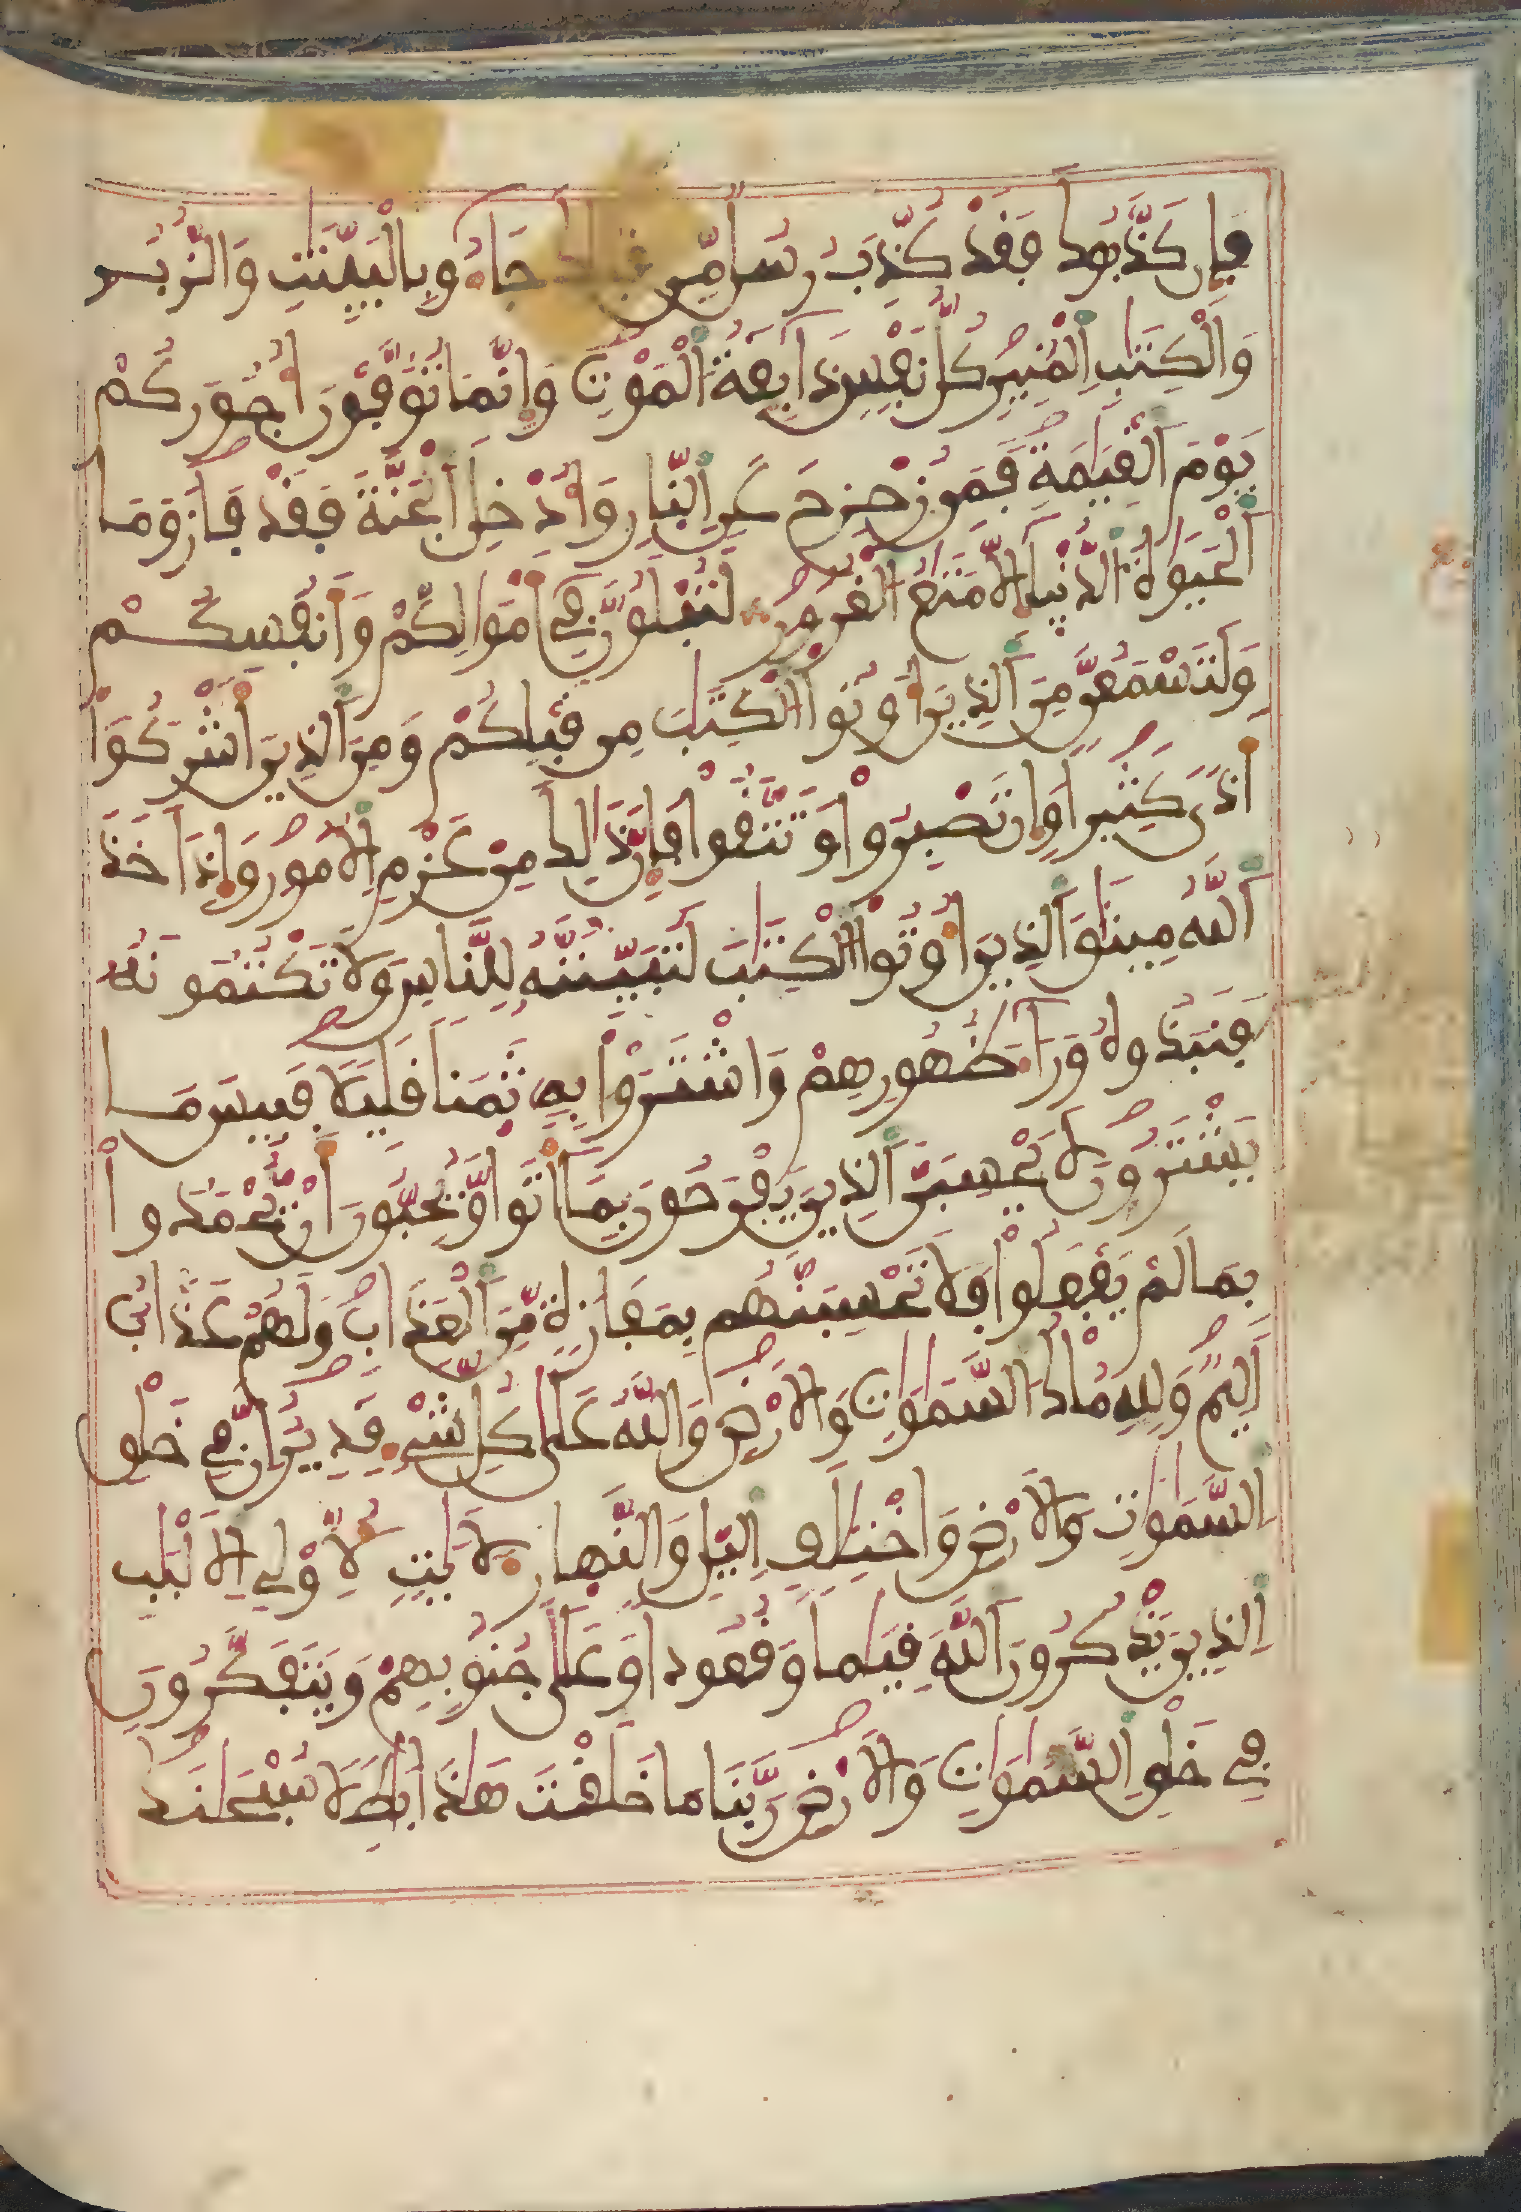 فَإِن كَذَّبُوكَ فَقَدْ كُذِّبَ رُسُلٌ مِّن قَبْلِكَ جَآءُو بِالْبَيِّنَٰتِ وَالزُّبُرِ
وَالْكِتَٰبِ الْمُنِيرِ كُلُّ نَفْسٍ ذَآئِقَةُ الْمَوْتِ وَإِنَّمَا تُوَفَّوْنَ أُجُورَكُمْ
يَوْمَ الْقِيَٰمَةِ فَمَن زُحْزِحَ عَنِ النّ۪ارِ وَأُدْخِلَ الْجَنَّةَ فَقَدْ فَازَ وَمَا
الْحَيَوٰةُ الدُّنْيَآ إِلَّا مَتَٰعُ الْغُرُورِ لَتُبْلَوُنَّ فِي أَمْوَٰلِكُمْ وَأَنفُسِكُمْ
وَلَتَسْمَعُنَّ مِنَ الَّذِينَ أُوتُوا الْكِتَٰبَ مِن قَبْلِكُمْ وَمِنَ الَّذِينَ أَشْرَكُوٓا
أَذًى كَثِيرًا وَإِن تَصْبِرُوا وَتَتَّقُوا فَإِنَّ ذَٰلِكَ مِنْ عَزْمِ الْأُمُورِ وَإِذْ أَخَذَ
اللَّهُ مِيثَٰقَ الَّذِينَ أُوتُوا الْكِتَٰبَ لَتُبَيِّنُنَّهُ لِلنَّاسِ وَلَا تَكْتُمُونَهُ
فَنَبَذُوهُ وَرَآءَ ظُهُورِهِمْ وَاشْتَرَوْا بِهِ ثَمَنًا قَلِيلًا فَبِيسَ مَا
يَشْتَرُونَ لَا يَحْسِبَنَّ الَّذِينَ يَفْرَحُونَ بِمَآ أَتَوا وَّيُحِبُّونَ أَنْ يُّحْمَدُوا
بِمَا لَمْ يَفْعَلُوا فَلَا تَحْسِبَنَّهُم بِمَفَازَةٍ مِّنَ الْعَذَابِ وَلَهُمْ عَذَابٌ
أَلِيمٌ وَلِلهِ مُلْكُ السَّمَٰوَٰتِ وَالْأَرْضِ وَاللَّهُ عَلَىٰ كُلِّ شَيْءٍ قَدِيرٌ إِنَّ فِي خَلْقِ
السَّمَٰوَٰتِ وَالْأَرْضِ وَاخْتِلَٰفِ الَّيْلِ وَالنَّهَارِ لَأٓيَٰتٍ لِّأُوْلِي الْأَلْبَٰبِ
الَّذِينَ يَذْكُرُونَ اللَّهَ قِيَٰمًا وَقُعُودًا وَعَلَىٰ جُنُوبِهِمْ وَيَتَفَكَّرُونَ
فِي خَلْقِ السَّمَٰوَٰتِ وَالْأَرْضِ رَبَّنَا مَا خَلَقْتَ هَٰذَا بَٰطِلًا سُبْحَٰنَكَ